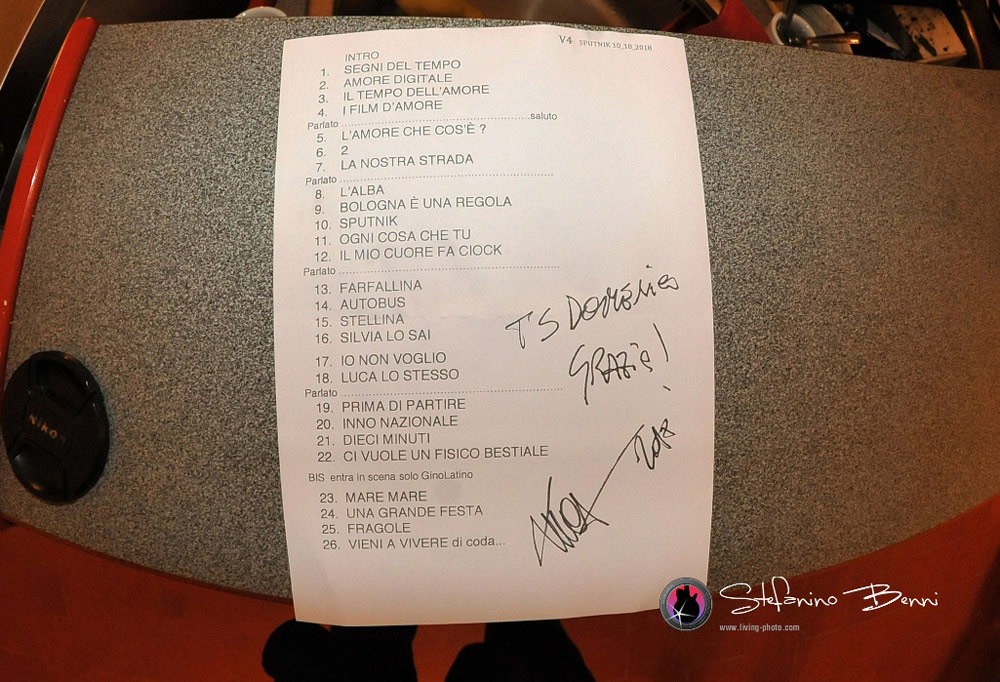 V4 SPUTNIK 10_10_2018
INTRO
1. SEGNI DEL TEMPO
2. AMORE DIGITALE
3. IL TEMPO DELL'AMORE
4. I FILM D'AMORE
Parlato ..........................................................saluto
5. L'AMORE CHE COS'È ?
6. 2
7. LA NOSTRA STRADA
Parlato ..................................................................
8. L'ALBA
9. BOLOGNA È UNA REGOLA
10. SPUTNIK
11. OGNI COSA CHE TU
12. IL MIO CUORE FA CIOCK
Parlato ..................................................................
13. FARFALLINA
14. AUTOBUS
15. STELLINA
16. SILVIA LO SAI
17. IO NON VOGLIO
18. LUCA LO STESSO
Parlato ..................................................................
19. PRIMA DI PARTIRE
20. INNO NAZIONALE
21. DIECI MINUTI
22. CI VUOLE UN FISICO BESTIALE
BIS entra in scena solo GinoLatino
23. MARE MARE
24. UNA GRANDE FESTA
25. FRAGOLE
26. VIENI A VIVERE di coda...
GRAZIE!
Nikon
Stefanino Benni
www.living-photo.com